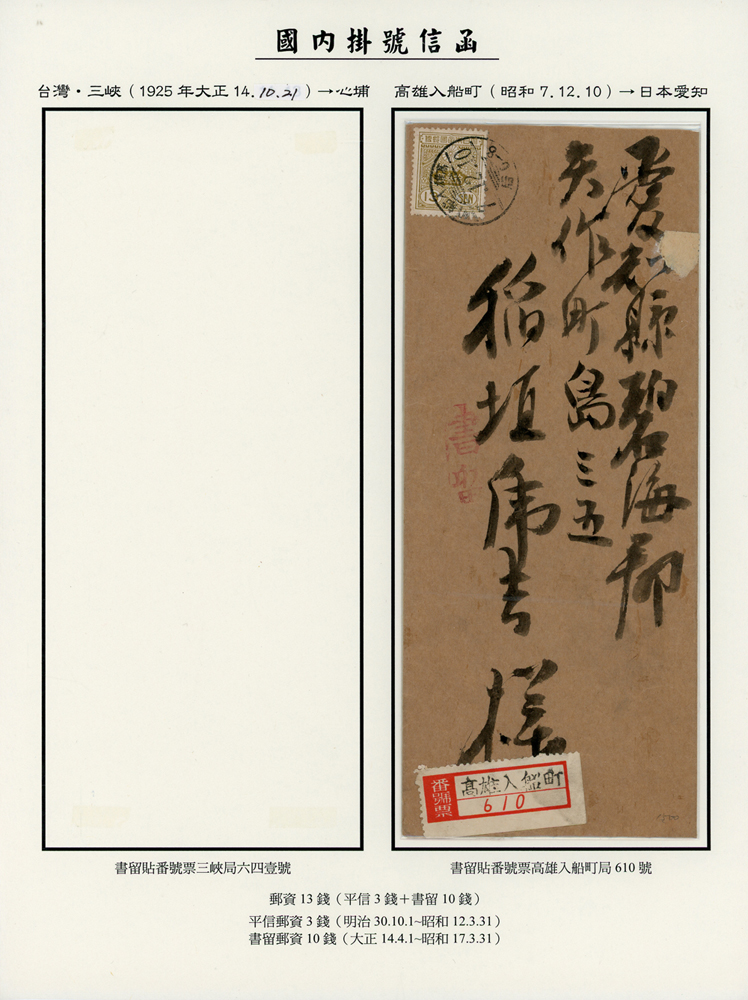 國內掛號信函
台灣・三峽（1925 年大正 14.10.21）→心埔
高雄入船町（昭和 7.12.10）→日本愛知
愛知縣碧海郡
矢作町島三五
稻垣帋吉樣
書留
番號票
高雄入船町
610
書留貼番號票三峽局六四壹號
書留貼番號票高雄入船町局 610 號
郵資 13 錢（平信 3 錢＋書留 10 錢）
平信郵資 3 錢（明治 30.10.1~昭和 12.3.31）
書留郵資 10 錢（大正 14.4.1~昭和 17.3.31）